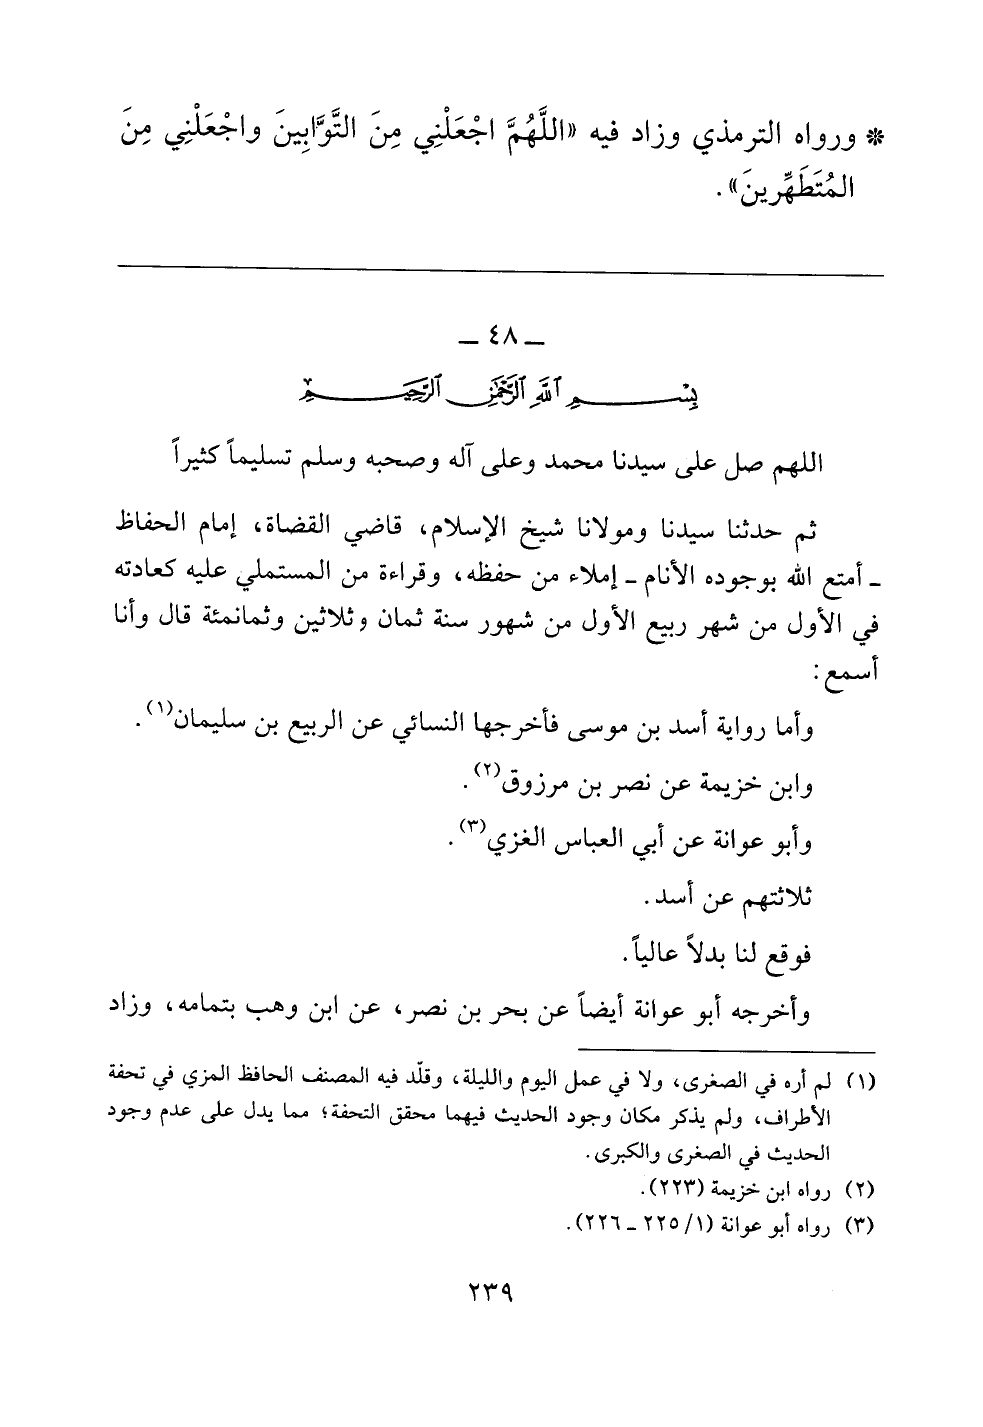 * ورواه الترمذي وزاد فيه «اللَّهُمَّ اجْعَلْنِي مِنَ التَّوَّابِينَ واجْعَلْنِي مِنَ
المُتَطَهِّرِينَ».
ــ ٤٨ ــ
بِسْمِ اللَّهِ الرَّحْمَنِ الرَّحِيمِ
اللهم صل على سيدنا محمد وعلى آله وصحبه وسلم تسليماً كثيراً
ثم حدثنا سيدنا ومولانا شيخ الإسلام، قاضي القضاة، إمام الحفاظ
ـ أمتع الله بوجوده الأنام ـ إملاء من حفظه، وقراءة من المستملي عليه كعادته
في الأول من شهر ربيع الأول من شهور سنة ثمان وثلاثين وثمانمئة قال وأنا
أسمع:
وأما رواية أسد بن موسى فأخرجها النسائي عن الربيع بن سليمان(١).
وابن خزيمة عن نصر بن مرزوق(٢).
وأبو عوانة عن أبي العباس الغزي(٣).
ثلاثتهم عن أسد.
فوقع لنا بدلاً عالياً.
وأخرجه أبو عوانة أيضاً عن بحر بن نصر، عن ابن وهب بتمامه، وزاد
(١) لم أره في الصغرى، ولا في عمل اليوم والليلة، وقلّد فيه المصنف الحافظ المزي في تحفة
الأطراف، ولم يذكر مكان وجود الحديث فيهما محقق التحفة؛ مما يدل على عدم وجود
الحديث في الصغرى والكبرى.
(٢) رواه ابن خزيمة (٢٢٣).
(٣) رواه أبو عوانة (١/ ٢٢٥ ـ ٢٢٦).
٢٣٩